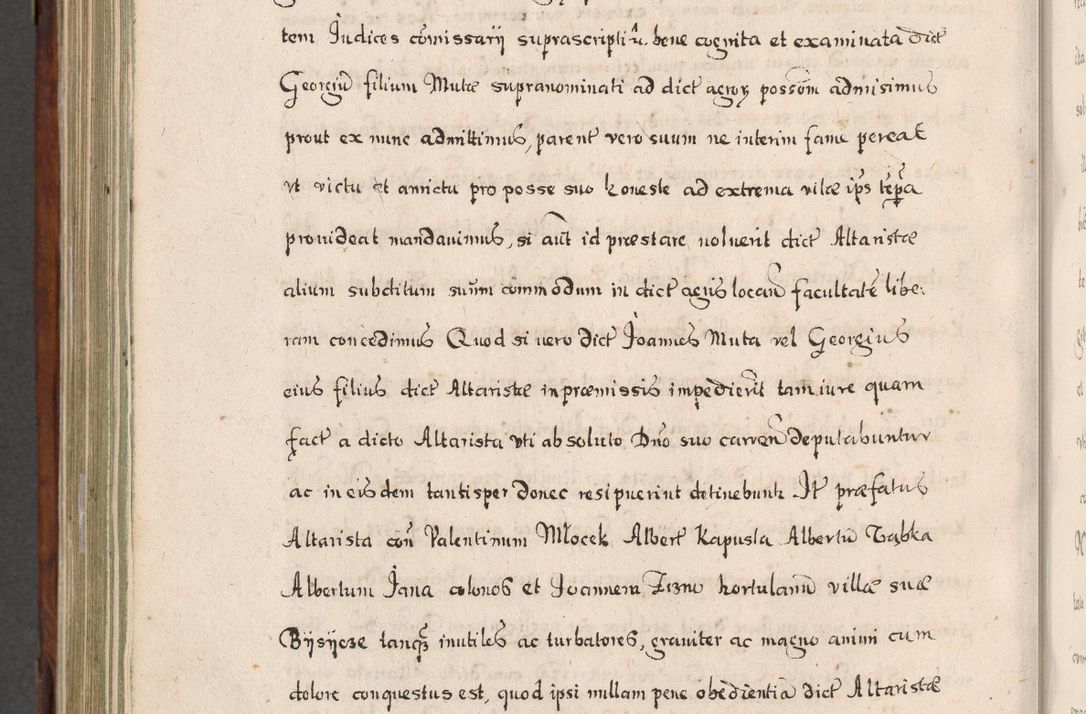 tem Judices com̃issarij suprascripti r̃. bene cognita et examinata dict
Georgiũ filium Mutæ supranominati ad dict agroꝝ possom̃ admisimus
prout ex nunc admittimus, parent̃ vero suum ne interim fame pereat
vt victu et amictu pro posse suo honeste ad extrema vitæ ips̃ tẽpa
prouideat mandauimus, si aũt id præstare noluerit dict Altaristæ
alium subditum suũm commodum in dict agris locan̄ facultatẽ libe:
ram concedimus Quod si uero dict Joannes Muta vel Georgius
eius filius dict Altaristæ in præmissis impedierĩt tam iure quam
fact a dicto Altarista vti absoluto Dño suo carcen̄ deputabuntur
ac in eisdem tantisper donec resipuerint detinebunt̃ It̃ præfatus
Altarista coñ Valentinum Młocek Albert̃ Kapusta Albertũ Gąbka
Albertum Jana colonos et Joannem Zizno hortulanũ villæ suæ
Bysycze tanqꝫ inutiles ac turbatores, grauiter ac magno animi cum
dolore conquestus est, quod ipsi nullam pene obedientiã dict Altaristæ